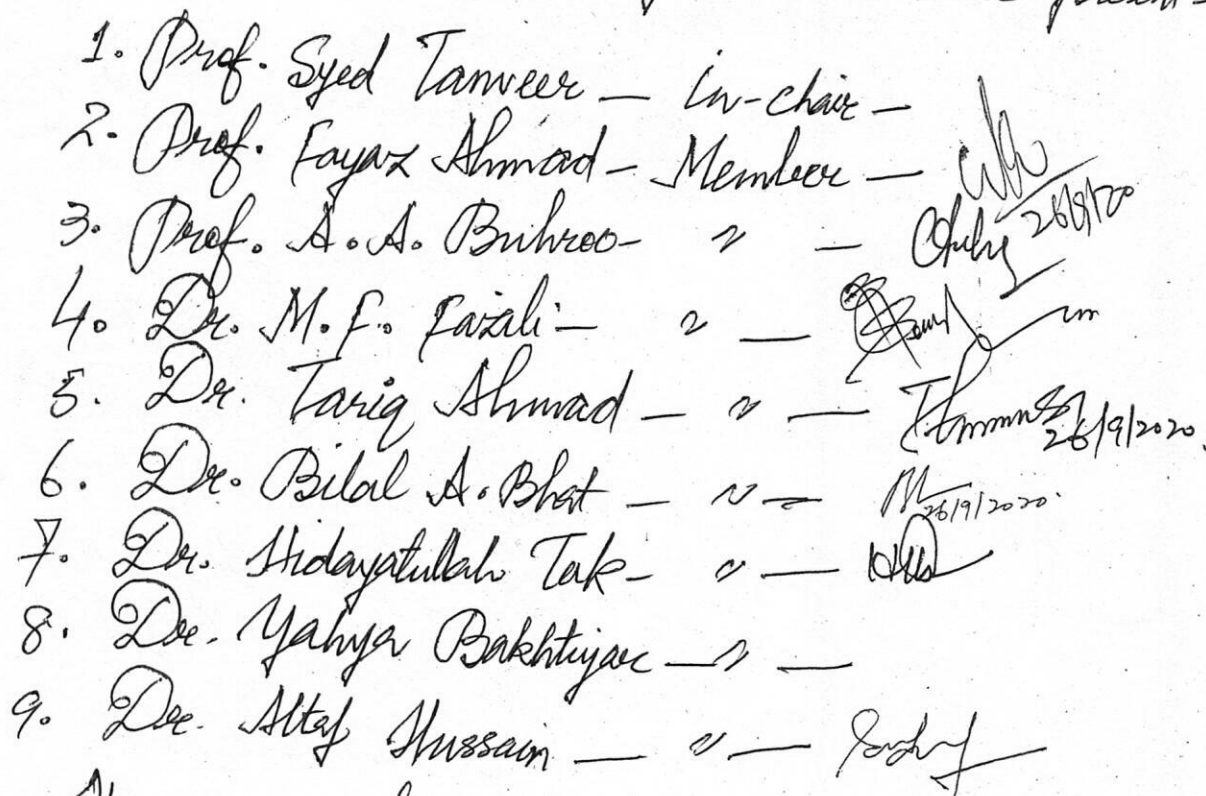 present-
1. Prof. Syed Tanveer — in-chair —
2. Prof. Fayaz Ahmad - Member — 26/9/20
3. Prof. A. A. Buhroo - " —
4. Dr. M. F. Fazili - " —
5. Dr. Tariq Ahmad - " — 26/9/2020.
6. Dr. Bilal A. Bhat - " — 26/9/2020.
7. Dr. Hidayatullah Tak - " —
8. Dr. Yahya Bakhtiyar - " —
9. Dr. Altaf Hussain — " —